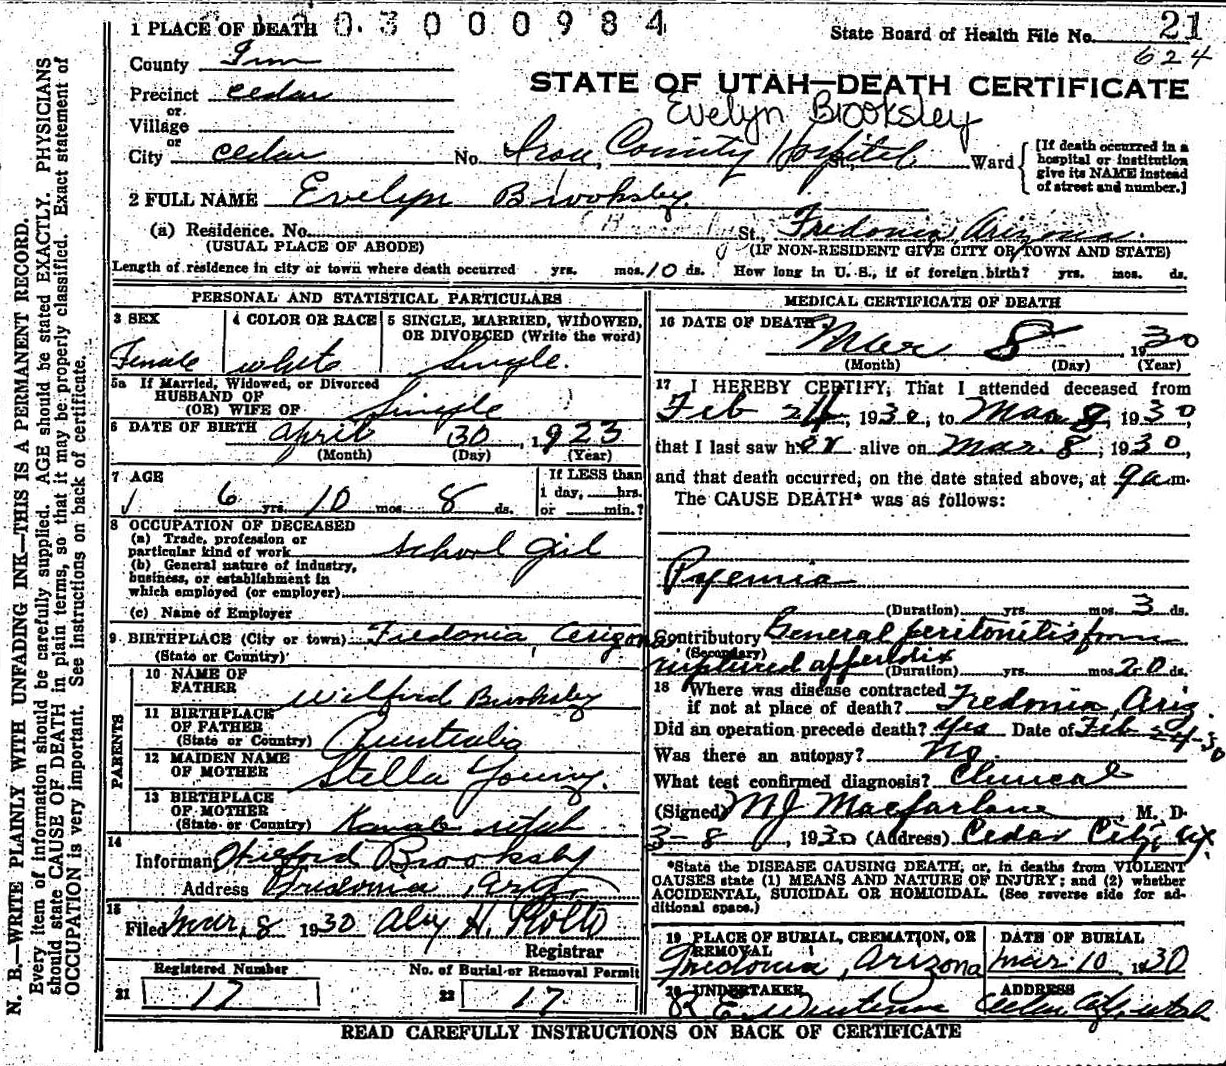 0 3 0 0 0 9 8 4
1 PLACE OF DEATH
State Board of Health File No. 21
624
County Iron
STATE OF UTAH—DEATH CERTIFICATE
Precinct Cedar
Evelyn Brooksley
or
Village
or
City Cedar No. Iron County Hospital St., Ward
[If death occurred in a hospital or institution give its NAME instead of street and number.]
2 FULL NAME Evelyn Brooksby
(a) Residence. No. St., Fredonia, Arizona.
(USUAL PLACE OF ABODE) (IF NON-RESIDENT GIVE CITY OR TOWN AND STATE)
Length of residence in city or town where death occurred yrs. mos. 10 ds. How long in U. S., if of foreign birth? yrs. mos. ds.
PERSONAL AND STATISTICAL PARTICULARS
3 SEX
Female
4 COLOR OR RACE
white
5 SINGLE, MARRIED, WIDOWED, OR DIVORCED (Write the word)
Single.
5a If Married, Widowed, or Divorced
HUSBAND OF
(OR) WIFE OF Single
6 DATE OF BIRTH April 30, 1923
(Month) (Day) (Year)
7 AGE
6 yrs. 10 mos. 8 ds.
If LESS than
1 day, hrs.
or min.?
8 OCCUPATION OF DECEASED
(a) Trade, profession or
particular kind of work School girl
(b) General nature of industry,
business, or establishment in
which employed (or employer)
(c) Name of Employer
9 BIRTHPLACE (City or town) Fredonia, Arizona
(State or Country)
PARENTS
10 NAME OF
FATHER Wilford Brooksby
11 BIRTHPLACE
OF FATHER
(State or Country) Australia
12 MAIDEN NAME
OF MOTHER Stella Young.
13 BIRTHPLACE
OF MOTHER
(State or Country) Kanab Utah
14
Informant Wilford Brooksby
Address Fredonia, Ariz
15
Filed Mar, 8 1930
Registrar
Registered Number
21 17
No. of Burial or Removal Permit
22 17
MEDICAL CERTIFICATE OF DEATH
16 DATE OF DEATH
Mar 8, 1930
(Month) (Day) (Year)
17 I HEREBY CERTIFY, That I attended deceased from
Feb 24, 1930, to Mar 8, 1930,
that I last saw her alive on Mar. 8, 1930,
and that death occurred, on the date stated above, at 9 a.m.
The CAUSE DEATH* was as follows:
Pyemia
(Duration) yrs. mos. 3 ds.
Contributory General peritonitis from
(Secondary)
ruptured appendix
(Duration) yrs. mos. 20 ds.
18 Where was disease contracted
if not at place of death? Fredonia, Ariz.
Did an operation precede death? Yes Date of Feb 24-30
Was there an autopsy? No.
What test confirmed diagnosis? Clinical
(Signed) MJ Macfarlane M. D.
3-8, 1930 (Address) Cedar City, Ut.
*State the DISEASE CAUSING DEATH, or, in deaths from VIOLENT
CAUSES state (1) MEANS AND NATURE OF INJURY; and (2) whether
ACCIDENTAL, SUICIDAL OR HOMICIDAL. (See reverse side for ad-
ditional space.)
19 PLACE OF BURIAL, CREMATION, OR
REMOVAL
Fredonia, Arizona
DATE OF BURIAL
Mar. 10 1930
20 UNDERTAKER
ADDRESS
Cedar City, Utah
READ CAREFULLY INSTRUCTIONS ON BACK OF CERTIFICATE
N. B.—WRITE PLAINLY WITH UNFADING INK—THIS IS A PERMANENT RECORD.
Every item of information should be carefully supplied. AGE should be stated EXACTLY. PHYSICIANS
should state CAUSE OF DEATH in plain terms, so that it may be properly classified. Exact statement of
OCCUPATION is very important. See instructions on back of certificate.